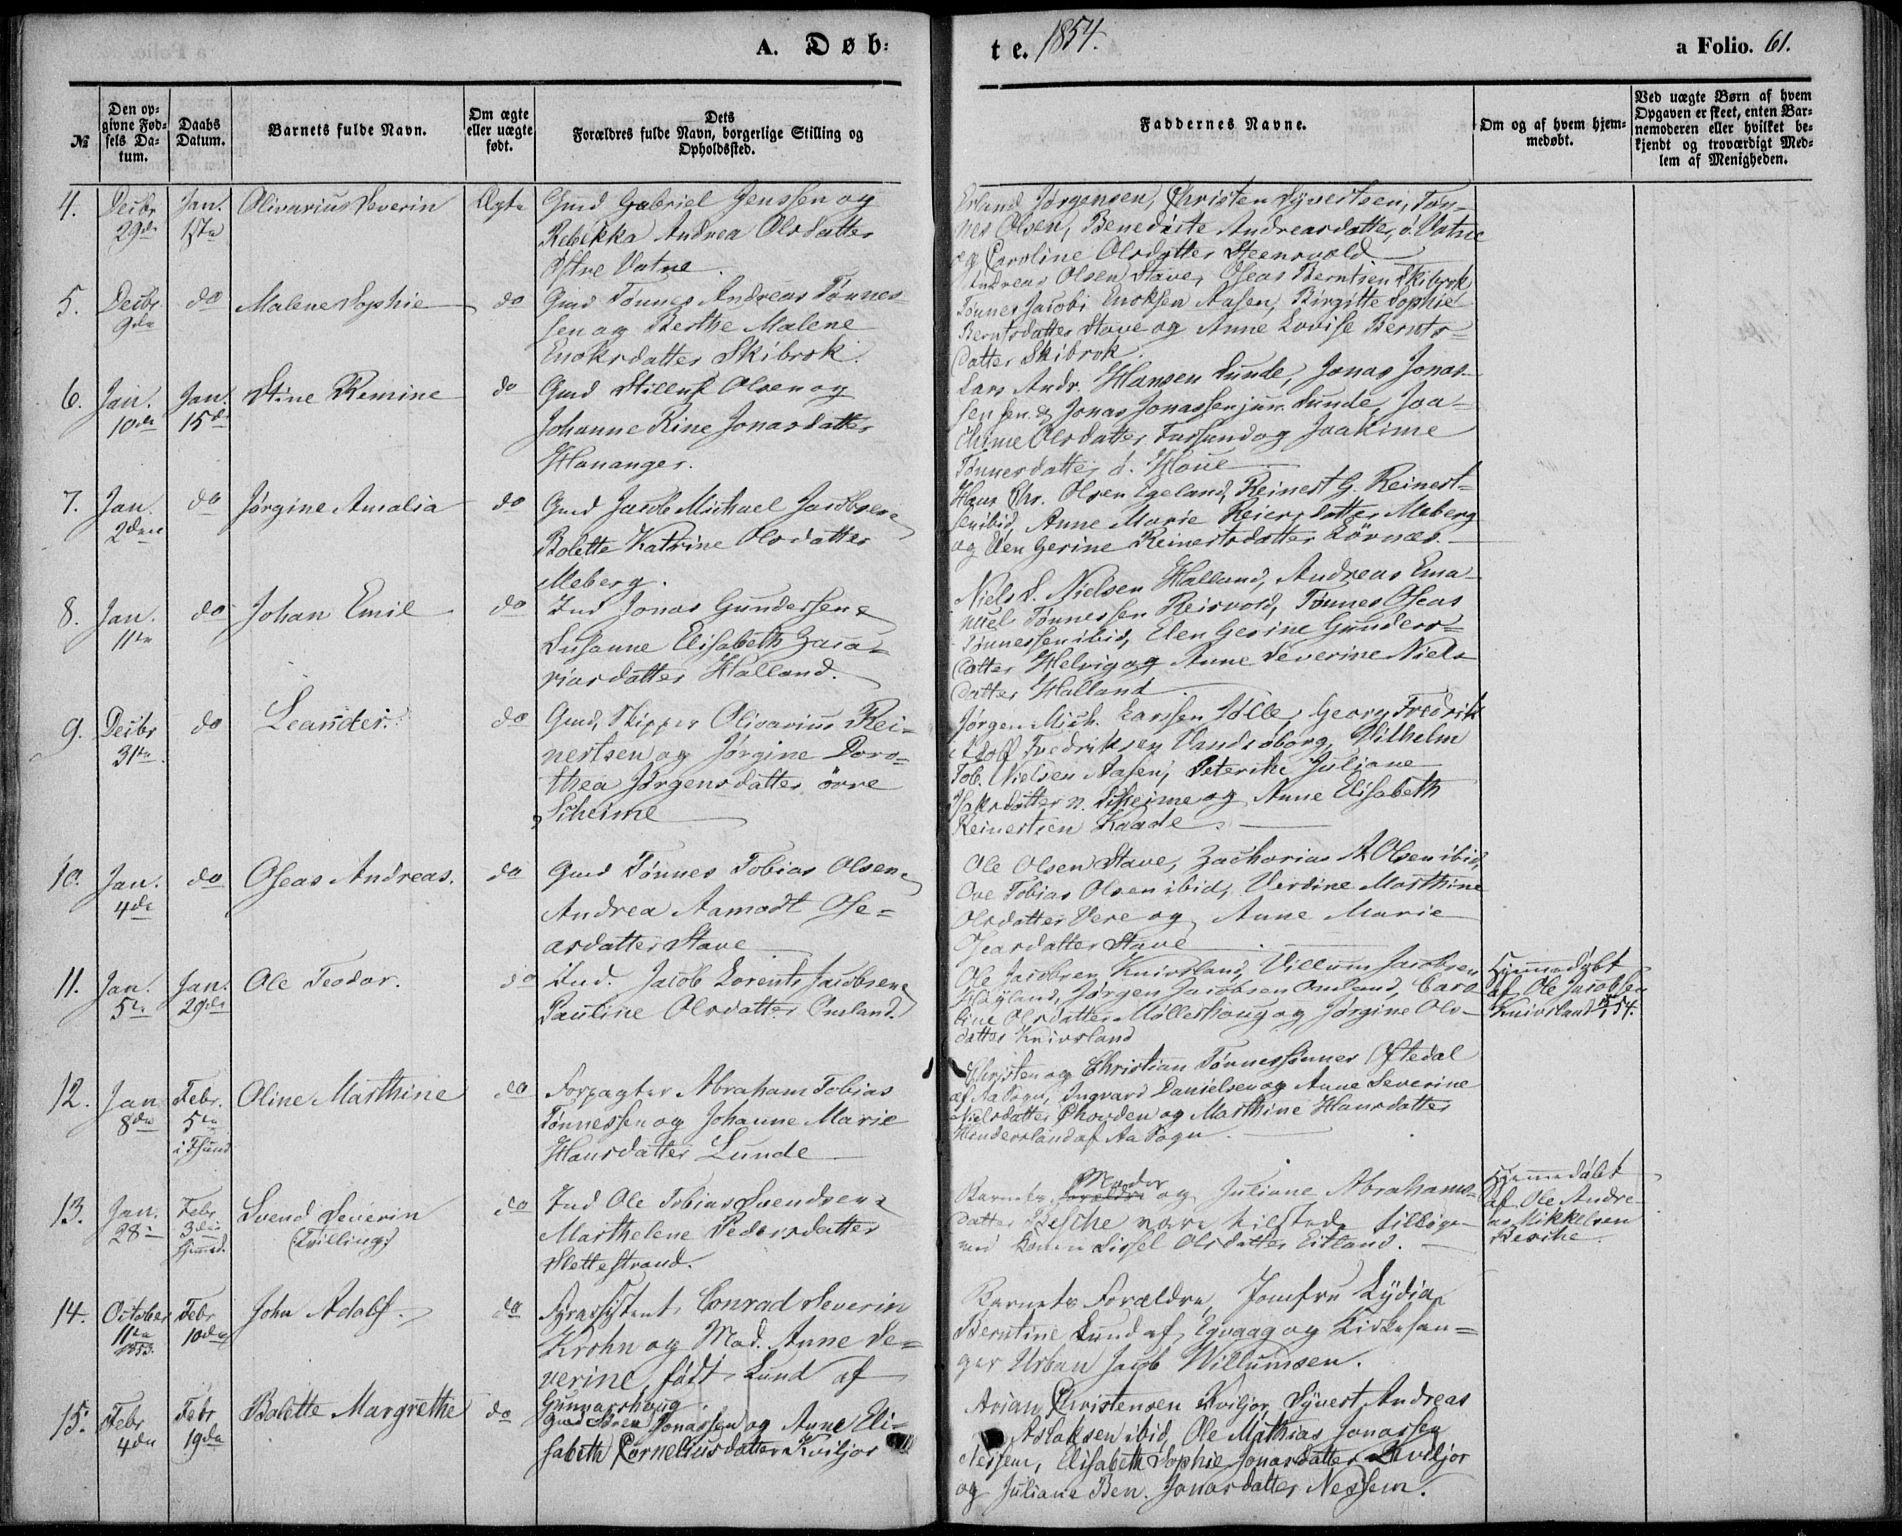 A. Døb=
te. 1854.
a Folio. 61.
№
Den op=
givne Fød=
sels Da=
tum.
Daabs
Datum.
Barnets fulde Navn.
Om ægte
eller uægte
født.
Dets
Forældres fulde Navn, borgerlige Stilling og
Opholdssted.
Faddernes Navne.
Om og af hvem hjem=
medøbt.
Ved uægte Børn af hvem
Opgaven er skeet, enten Bar=
nemoderen eller hvilket be=
kjendt og troværdigt Med=
lem af Menigheden.
4. Decbr 29de
Jan. 1ste
Olivarius Severin
Ægte
Gmd Gabriel Jenssen og
Rebekka Andrea Olsdatter
Østre Vatne.
Erland Jørgensen, Christen Syvertsen, Tøn-
nes Olsen, Benedicte Andreasdatter, ø. Vatne
og Caroline Olsdatter Steensvold
5. Decbr 9de
do
Malene Sophie
do
Gmd Tønnes Andreas Tønnes
sen og Berthe Malene
Enoksdatter Skibrok.
Andreas Olsen Stave, Oseas Berntsen Skibrok
Tønnes Jacobi Enoksen Aasen, Birgitte Sophie
Berntsdatter Stave og Anne Lovise Bernts-
datter Skibrok.
6. Jan. 10de
Jan. 15de
Stine Remine
do
Gmd Stillenf Olsen og
Johanne Rine Jonasdatter
Hananger.
Lars Andr. Hansen Lunde, Jonas Jonas-
sen sen. & Jonas Jonassen jun. Lunde, Joa-
chime Olsdatter Farsund og Joakime
Tønnesdatter ø. Haue
7. Jan. 2den
do
Jørgine Amalia
do
Gmd Jacob Michael Jacobsen &
Bolette Katrine Olsdatter
Meberg.
Hans Chr. Olsen Egeland, Reinert G. Reinert-
sen ibid, Anne Marie Reiersdatter Meberg
og Elen Gerine Reinertsdatter Lörnæs.
8. Jan. 11te
do
Johan Emil
do
Ind Jonas Gundersen &
Susanne Elisabeth Zaca-
riasdatter Halland.
Niels S. Nielsen Halland, Andreas Ema-
nuel Tønnessen Reisvold, Tønnes Oseas
Tønnessen ibid, Elen Gesine Gunders-
datter Helvig og Anne Severine Niels
datter Halland
9. Decbr 31te
do
Leander.
do
Gmd, Skipper Olivarius Rei-
nertsen og Jørgine Doro-
thea Jørgensdatter övre
Scheime
Jørgen Mich. Larssen Ulle, Georg Fredrik
Adolf Fredriksen Vandsborg, Vilhelm
Tob. Nielsen Aasen, Peterike Juliane
Isaksdatter n. Scheime og Anne Elisabeth
Reinertsen Kaade.
10. Jan. 4de
do
Oseas Andreas.
do
Gmd Tönnes Tobias Olsen &
Andrea Aamodt Ose-
asdatter Stave
Ole Olsen Stave, Zacharias A. Olsen ibid,
Ove Tobias Olsen ibid, Verdine Marthine
Olsdatter Vere og Anne Marie
Oseasdatter Stave
11. Jan. 5te
Jan. 29de
Ole Teodor.
do
Ind. Jacob Lorents Jacobsen &
Pauline Olsdatter Omland.
Ole Jacobsen Knivsland, Villum Jacobsen
Høyland, Jørgen Jacobsen Omland, Caro
line Olsdatter Møllerhaug og Jørgine Ols-
datter Knivsland
Hjemmedøbt
af Ole Jacobsen
Knivsland 54.
12. Jan 8de
Febr. 5te
i Fsund
Oline Marthine
do
Forpagter Abraham Tobias
Tønnessen og Johanne Marie
Hansdatter Lunde
Christen og Christian Tønnessønner Oftedal
af Aa Sogn, Ingvard Danielsen og Anne Severine
Nielsdatter Phorden og Marthine Hansdatter
Hindersland af Aa Sogn.
13. Jan. 28de
Febr 3die
hjemmed.
Svend Severin
(Tvilling)
do
Ind Ole Tobias Svendsen &
Marthelene Pedersdatter
Slettestrand.
Barnets Forældre Moder og Juliane Abrahams-
datter Besche vare tilstede tillige-
med Konen Sissel Olsdatter Eitland.
Hjemmedøbt
af Ole Andre-
as Mikkelsen
Besche.
14. October 11te 1853.
Febr 10de
John Adolf.
do
Fyrassistent Conrad Severin
Krohn og Mad. Anne Se-
verine født Lund af
Gunnarshaug.
Barnets Forældre, Jomfru Lydia
Berntine Lund af Egvaag og Kirkesan-
ger Urban Jacob Willumsen.
15. Febr 4de
Febr 19de
Bolette Margrethe
do
Gmd Sören Jonassen og Anne Eli-
sabeth Corneliusdatter Kviljor
Arian Christensen Kviljor, Syvert Andreas
Aslaksen ibid, Ole Mathias Jonassen
Nessem, Elisabeth Sophie Jonasdatter Kviljor
og Juliane Ben. Jonasdatter Nessem.